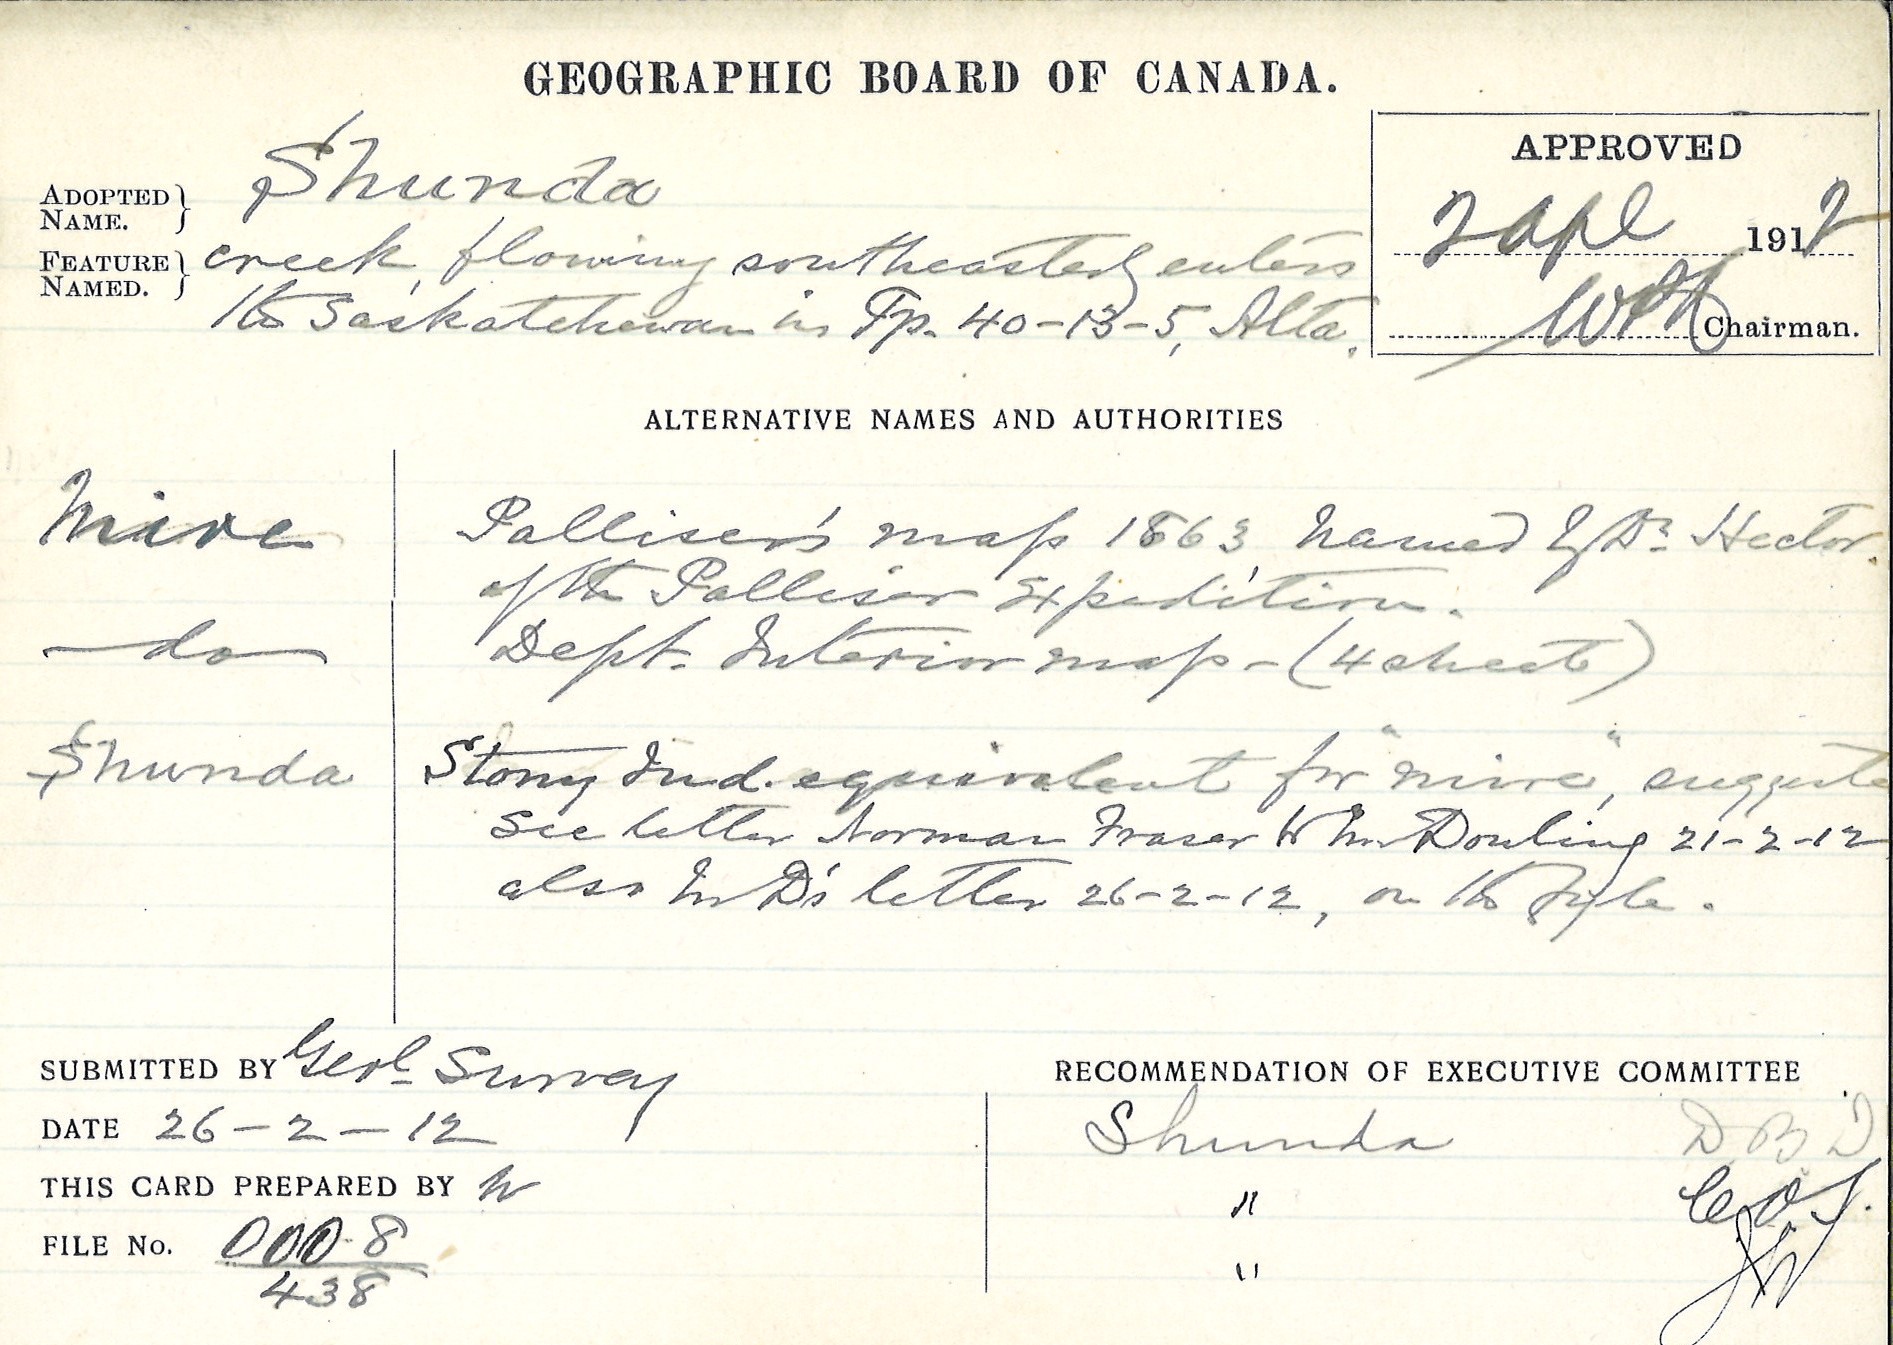 GEOGRAPHIC BOARD OF CANADA.
APPROVED
2 Apl 1912
Chairman.
ADOPTED NAME. } Shunda
FEATURE NAMED. } creek, flowing southeasterly enters
the Saskatchewan in Tp. 40-13-5, Alta.
ALTERNATIVE NAMES AND AUTHORITIES
Mire Palliser's map 1863, named by Dr. Hector.
of the Palliser Expedition.
do Dept. Interior map - (4 sheets)
Shunda Stony Ind. equivalent for "mire",
see letter Norman Fraser to Mr. Dowling 21-2-12
also Mr D's letter 26-2-12, on the file.
SUBMITTED BY Geol. Survey
DATE 26-2-12
THIS CARD PREPARED BY W
FILE No. 000-8
438
RECOMMENDATION OF EXECUTIVE COMMITTEE
Shunda DBD
"
"